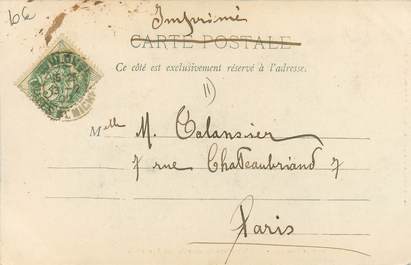 b6
Imprimé
CARTE POSTALE
Ce côté est exclusivement réservé à l'adresse.
11
Melle M. Calansier
7 rue Chateaubriand 7
Paris